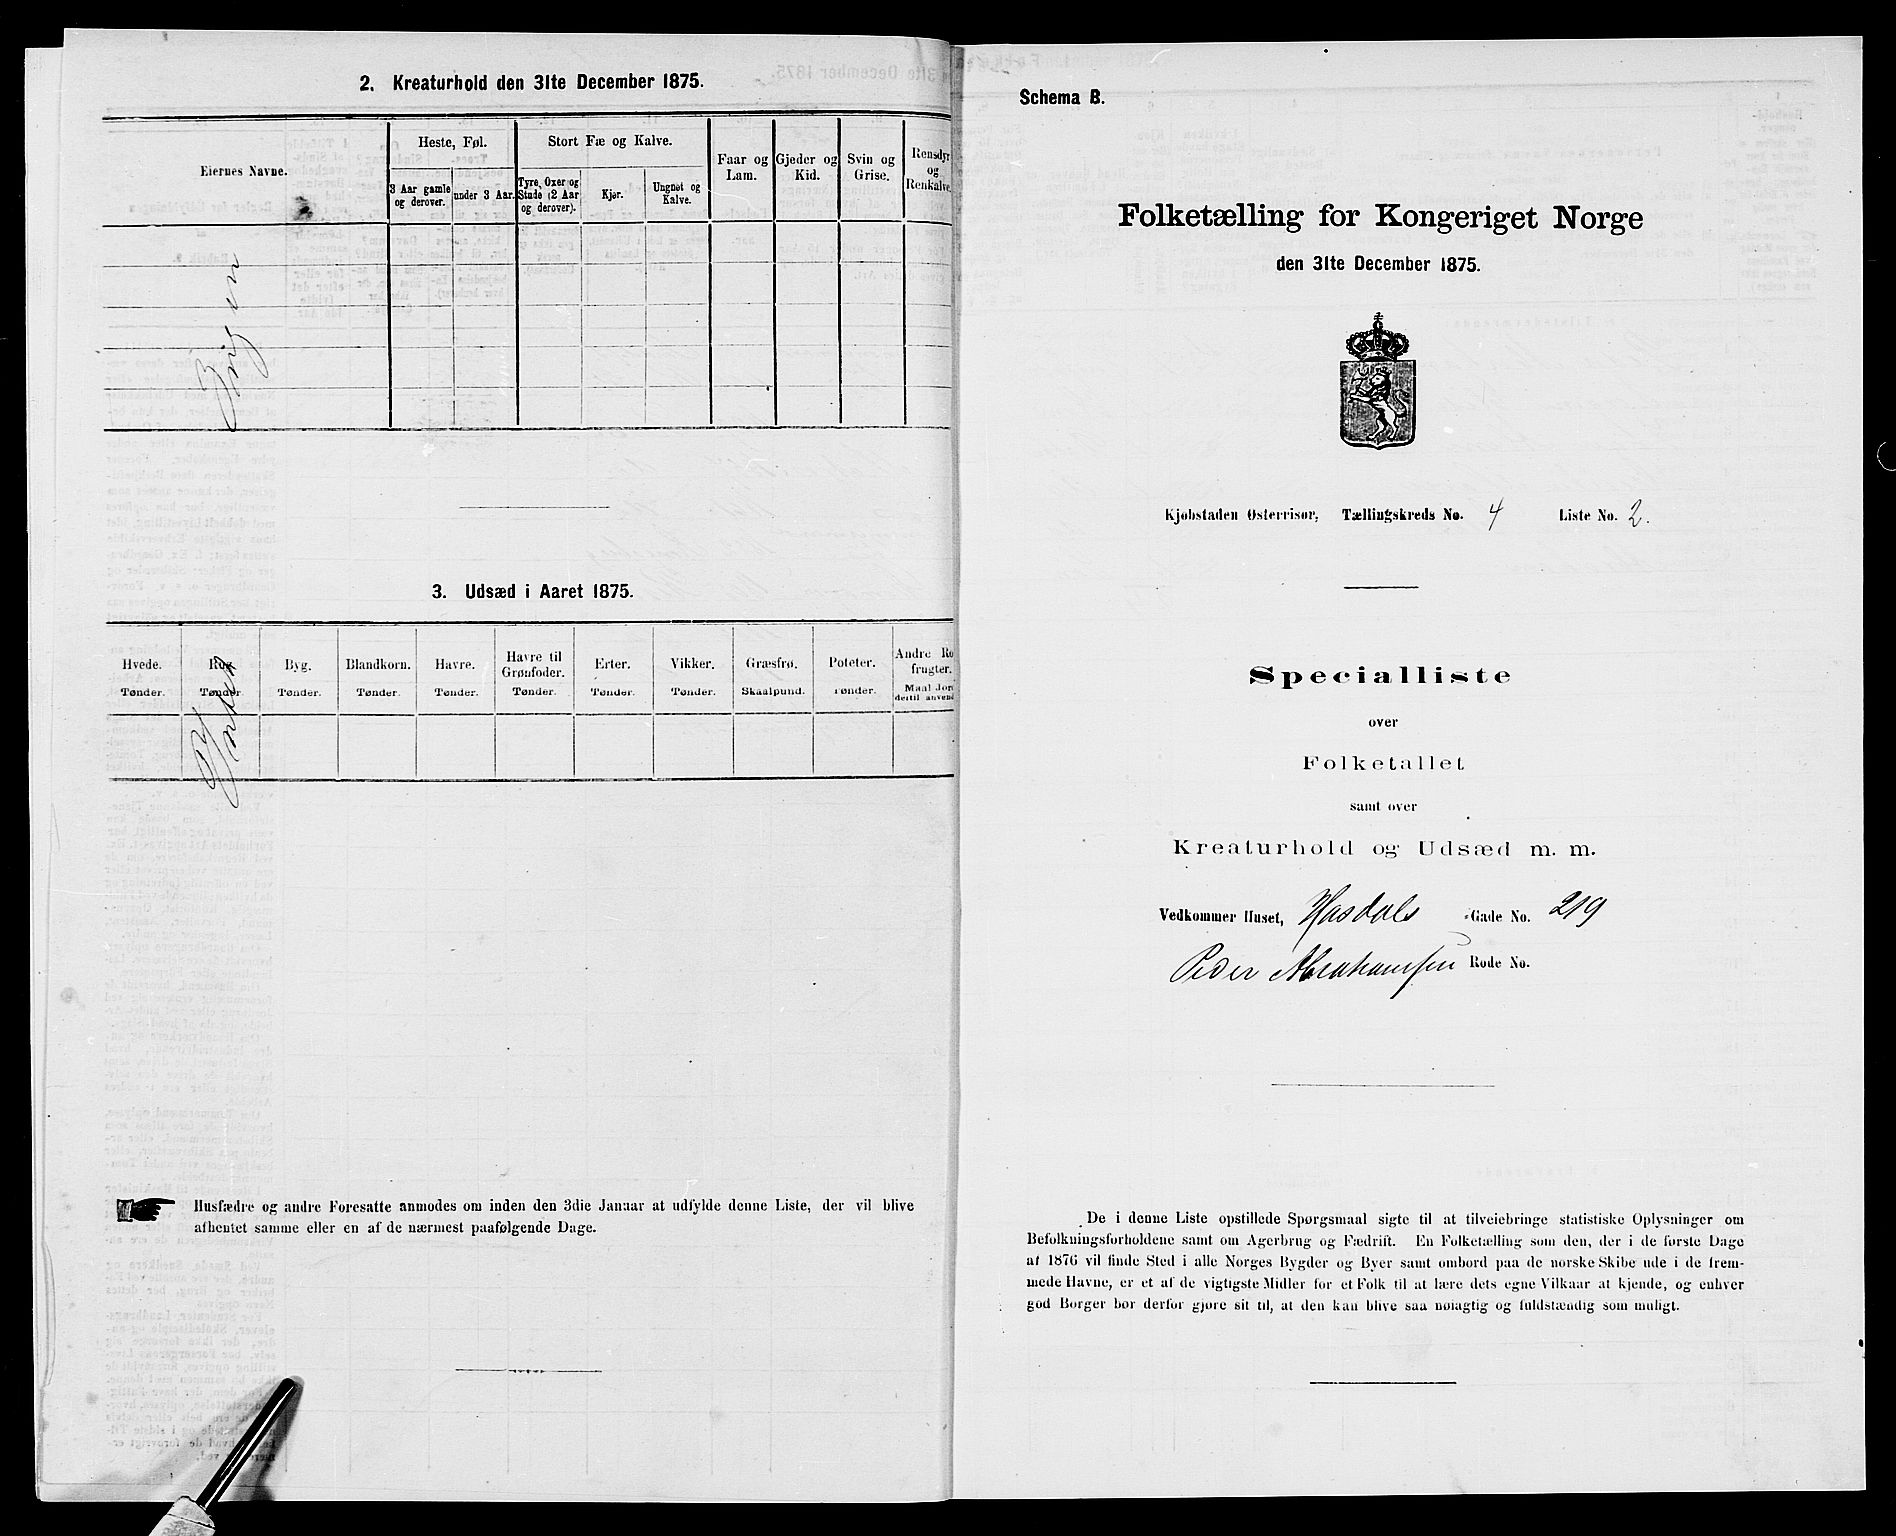 2. Kreaturhold den 31te December 1875.
Eiernes Navne.
Heste, Føl.
Stort Fæ og Kalve.
Faar og Lam.
Gjeder og Kid.
Svin og Grise.
Rensdyr og Renkalve.
3 Aar gamle og derover.
under 3 Aar.
Tyre, Oxer og Stude (2 Aar og derover).
Kjør.
Ungnøt og Kalve.
Ingen
3. Udsæd i Aaret 1875.
Hvede. Rug. Byg. Blandkorn. Havre. Havre til Grønfoder. Erter. Vikker. Græsfrø. Poteter. Andre Ro frugter.
Tønder. Tønder. Tønder. Tønder. Tønder. Tønder. Tønder. Tønder. Skaalpund. Tønder. Maal Jor dertil anvend
Husfædre og andre Foresatte anmodes om inden den 3die Januar at udfylde denne Liste, der vil blive
afhentet samme eller en af de nærmest paafølgende Dage.
Schema B.
Folketælling for Kongeriget Norge
den 31te December 1875.
Kjøbstaden Østerrisør, Tællingskreds No. 4 Liste No. 2.
Specialliste
over
Folketallet
samt over
Kreaturhold og Udsæd m. m.
Vedkommer Huset, Hasdals Gade No. 219
Peder Abrahamsen Rode No.
De i denne Liste opstillede Spørgsmaal sigte til at tilveiebringe statistiske Oplysninger om
Befolkningsforholdene samt om Agerbrug og Fædrift. En Folketælling som den, der i de første Dage
af 1876 vil finde Sted i alle Norges Bygder og Byer samt ombord paa de norske Skibe ude i de frem-
mede Havne, er et af de vigtigste Midler for et Folk til at lære dets egne Vilkaar at kjende, og enhver
god Borger bør derfor gjøre sit til, at den kan blive saa nøiagtig og fuldstændig som muligt.